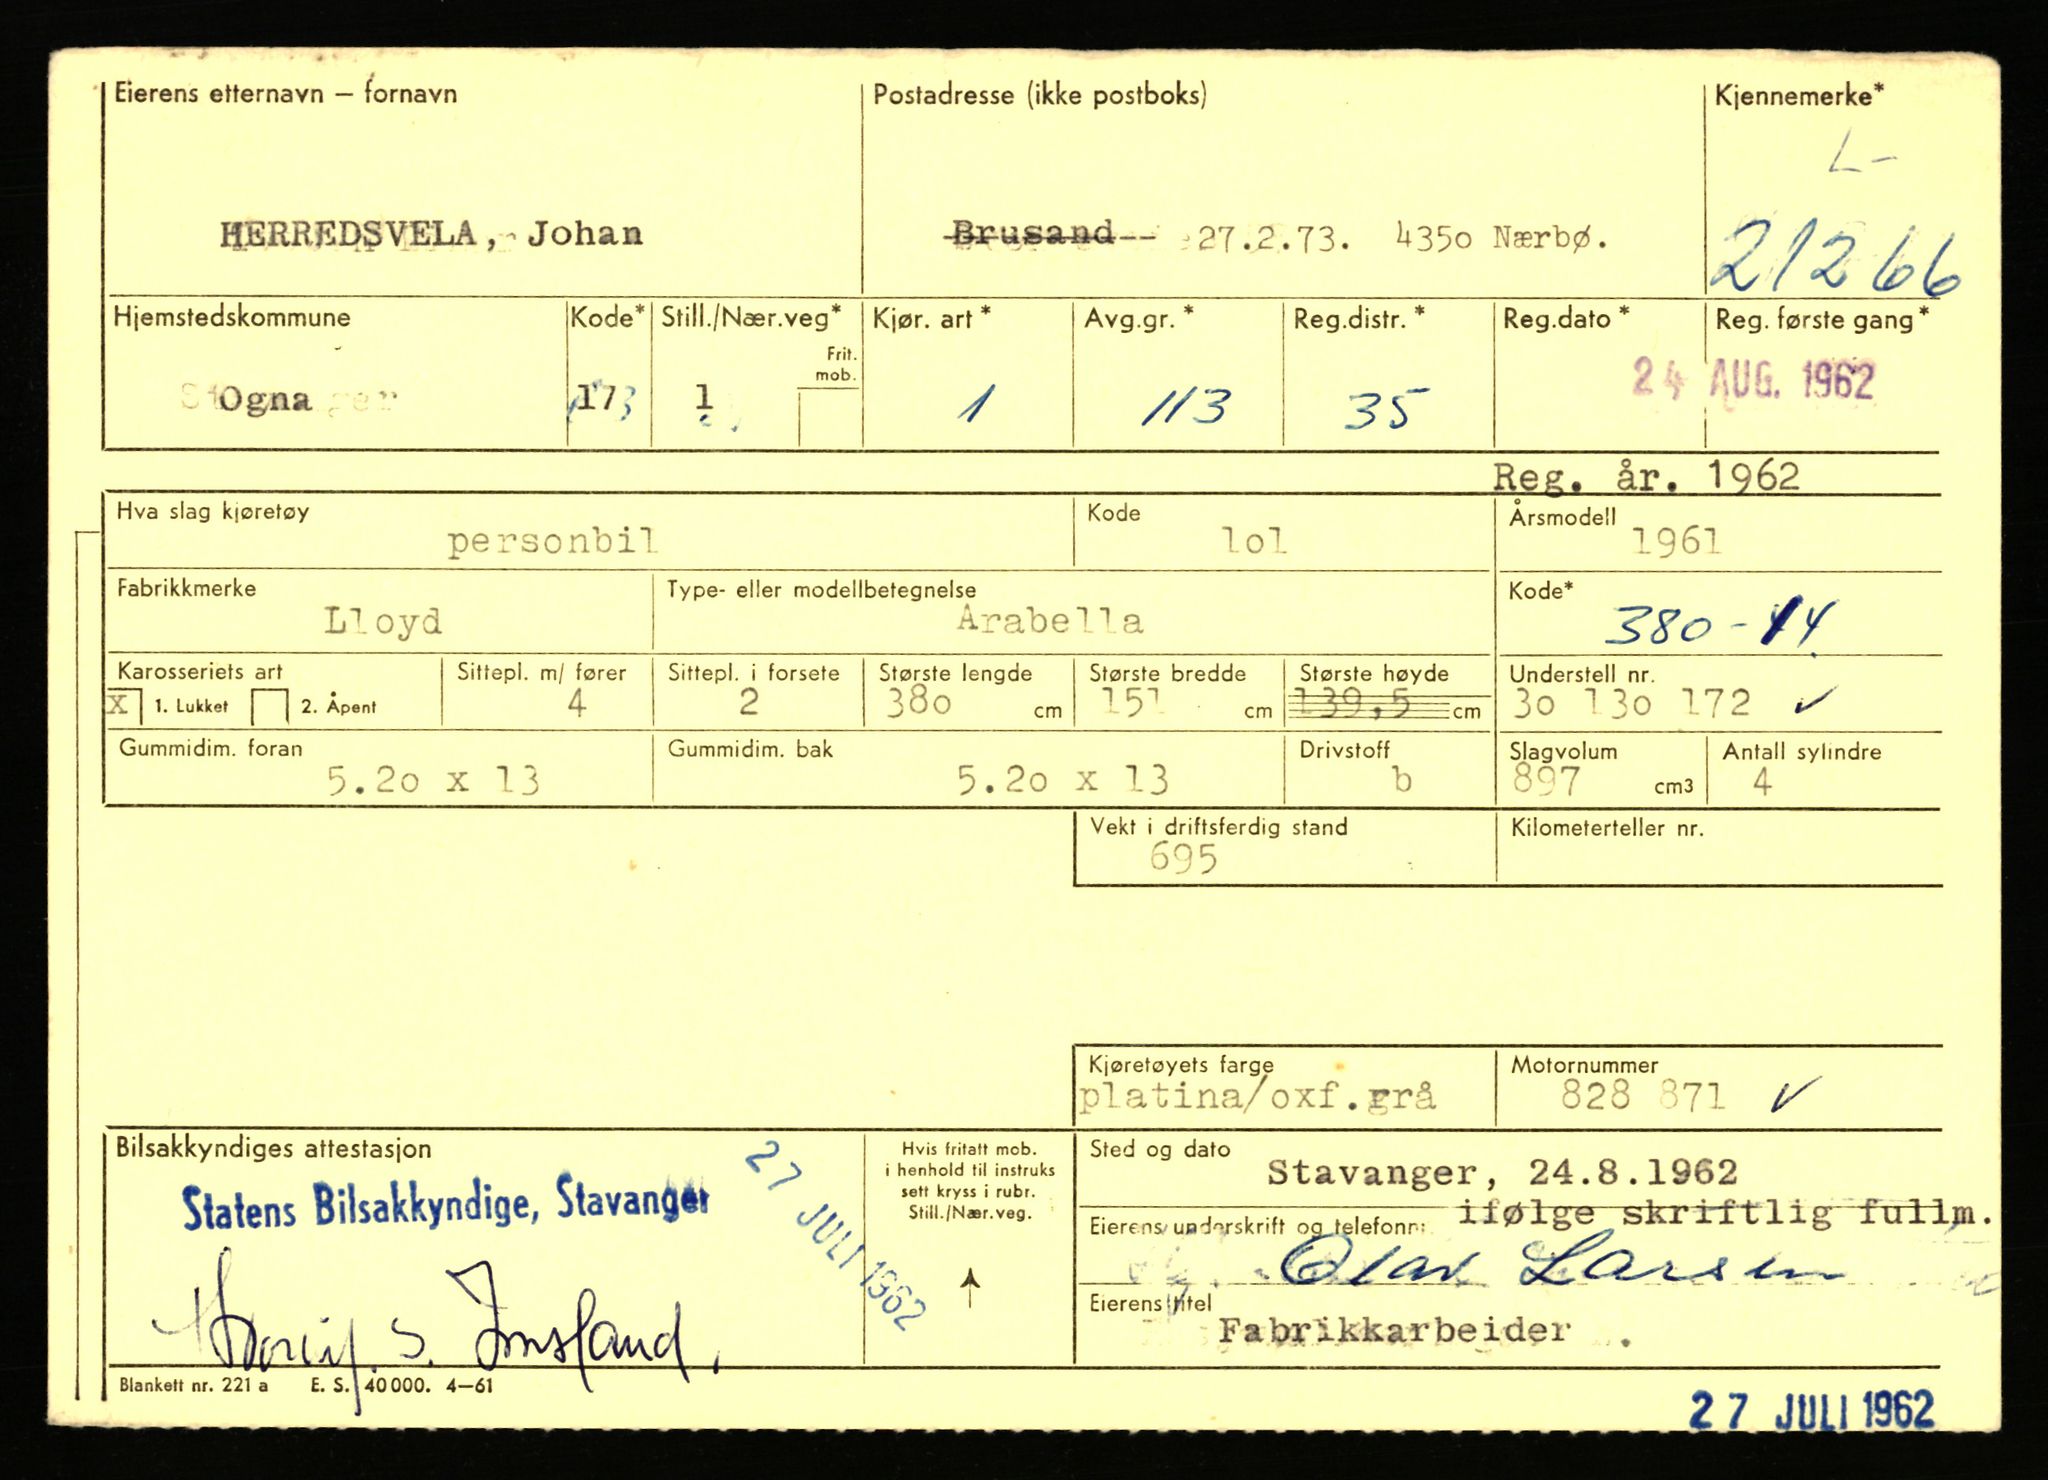 Eierens etternavn – fornavn Postadresse (ikke postboks) Kjennemerke*
L-
HERREDSVELA, Johan Brusand-- 27.2.73. 4350 Nærbø. 21266
Hjemstedskommune Kode* Still./Nær.veg* Kjør. art* Avg.gr.* Reg.distr.* Reg.dato* Reg. første gang*
Frit. mob.
Ogna 173 1 1 113 35 24 AUG. 1962
Reg. år. 1962
Hva slag kjøretøy Kode Årsmodell
personbil lol 1961
Fabrikkmerke Type- eller modellbetegnelse Kode*
Lloyd Arabella 380-14.
Karosseriets art Sittepl. m/ fører Sittepl. i forsete Største lengde Største bredde Største høyde Understell nr.
x 1. Lukket 2. Åpent 4 2 380 cm 151 cm 139,5 cm 3o 13o 172 ✓
Gummidim. foran Gummidim. bak Drivstoff Slagvolum Antall sylindre
5.2o x 13 5.2o x 13 b 897 cm3 4
Vekt i driftsferdig stand Kilometerteller nr.
695
Kjøretøyets farge Motornummer
platina/oxf.grå 828 871 ✓
Bilsakkyndiges attestasjon Hvis fritatt mob. i henhold til instruks sett kryss i rubr. Still./Nær.veg. Sted og dato
27 JULI 1962
Statens Bilsakkyndige, Stavanger Stavanger, 24.8.1962
ifølge skriftlig fullm.
Eierens underskrift og telefonnr
Olav Larsen
Eierens titel
Fabrikkarbeider .
Blankett nr. 221 a E. S. 40 000. 4–61
27 JULI 1962